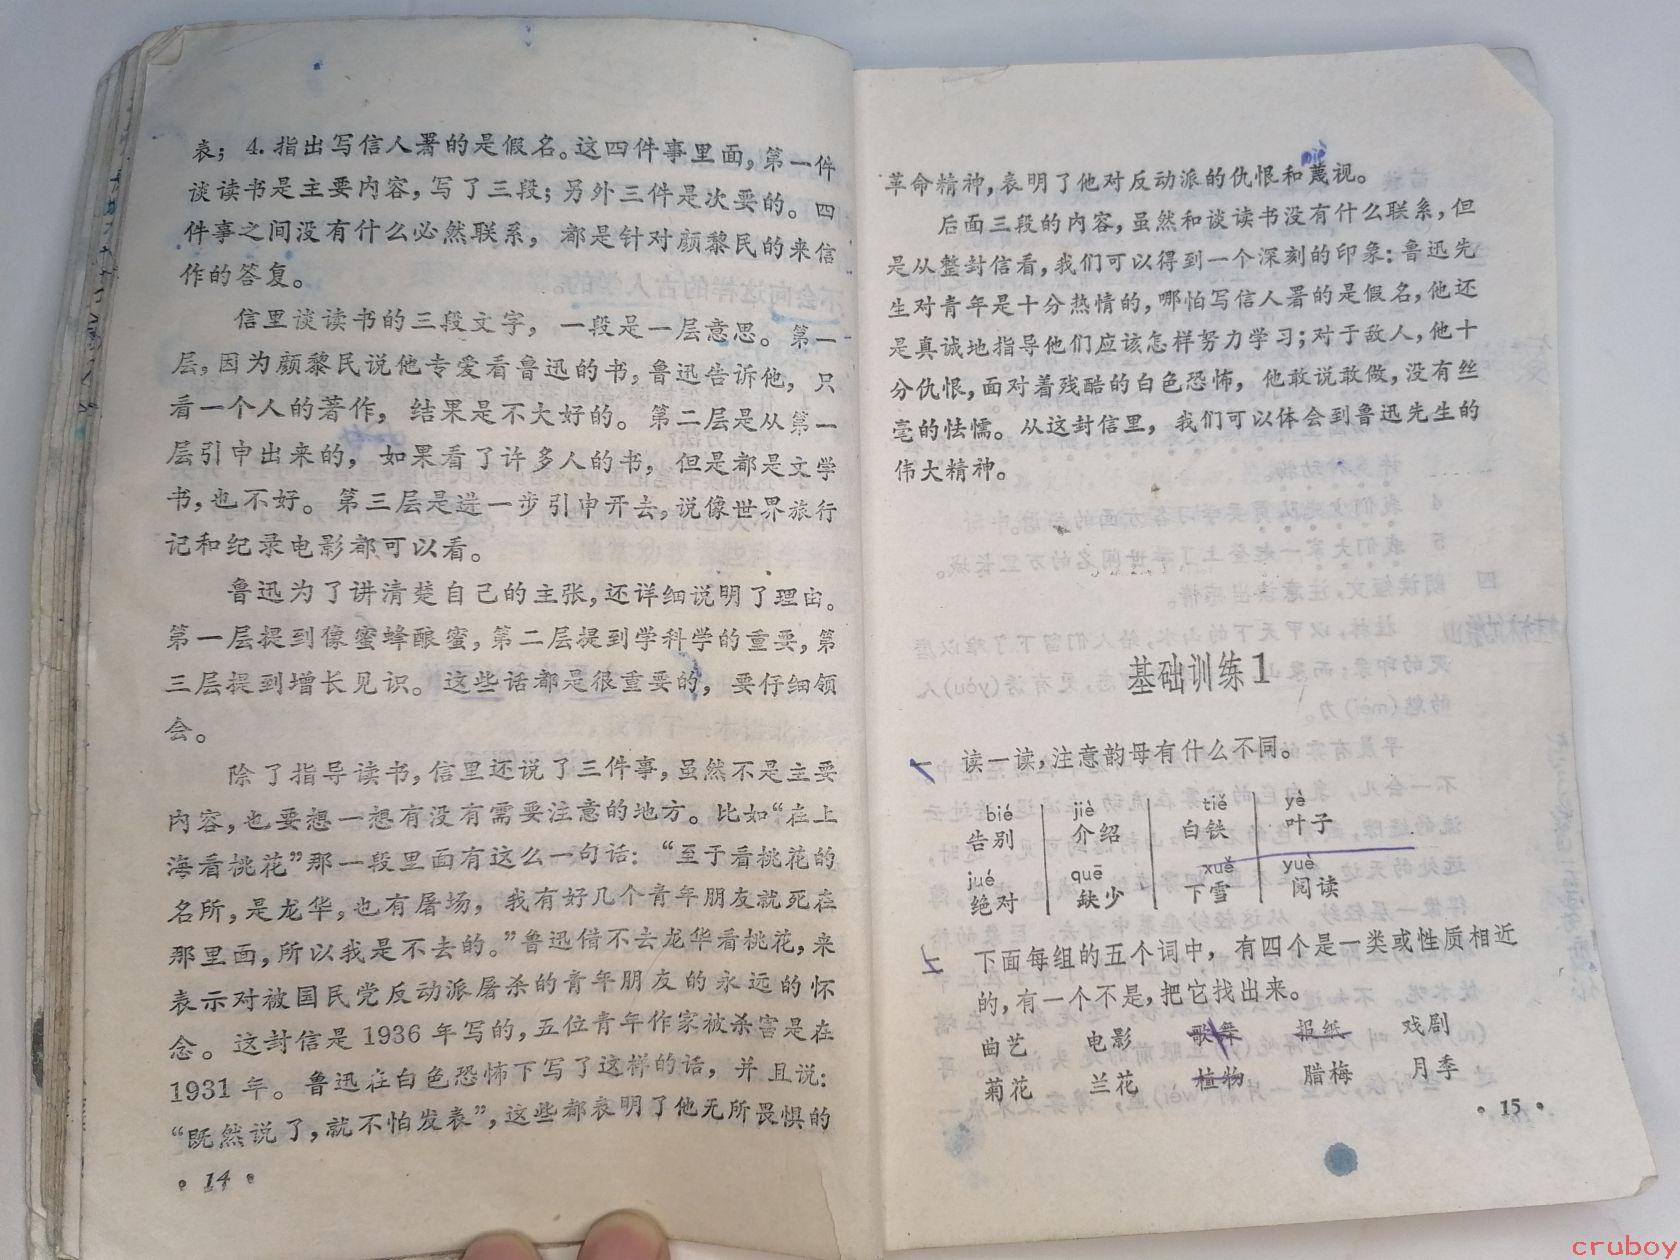 表；4.指出写信人署的是假名。这四件事里面，第一件
谈读书是主要内容，写了三段；另外三件是次要的。四
件事之间没有什么必然联系，都是针对颜黎民的来信
作的答复。
信里谈读书的三段文字，一段是一层意思。第一
层，因为颜黎民说他专爱看鲁迅的书，鲁迅告诉他，只
看一个人的著作，结果是不大好的。第二层是从第一
层引申出来的，如果看了许多人的书，但是都是文学
书，也不好。第三层是进一步引申开去，说像世界旅行
记和纪录电影都可以看。
鲁迅为了讲清楚自己的主张，还详细说明了理由。
第一层提到像蜜蜂酿蜜，第二层提到学科学的重要，第
三层提到增长见识。这些话都是很重要的，要仔细领
会。
除了指导读书，信里还说了三件事，虽然不是主要
内容，也要想一想有没有需要注意的地方。比如“在上
海看桃花”那一段里面有这么一句话：“至于看桃花的
名所，是龙华，也有屠场，我有好几个青年朋友就死在
那里面，所以我是不去的。”鲁迅借不去龙华看桃花，来
表示对被国民党反动派屠杀的青年朋友的永远的怀
念。这封信是1936年写的，五位青年作家被杀害是在
1931年。鲁迅在白色恐怖下写了这样的话，并且说：
“既然说了，就不怕发表”，这些都表明了他无所畏惧的
·14·
miè
革命精神，表明了他对反动派的仇恨和蔑视。
后面三段的内容，虽然和谈读书没有什么联系，但
是从整封信看，我们可以得到一个深刻的印象：鲁迅先
生对青年是十分热情的，哪怕写信人署的是假名，他还
是真诚地指导他们应该怎样努力学习；对于敌人，他十
分仇恨，面对着残酷的白色恐怖，他敢说敢做，没有丝
毫的怯懦。从这封信里，我们可以体会到鲁迅先生的
伟大精神。
基础训练1
一 读一读，注意韵母有什么不同。
bié jiè tiě yè
告别 介绍 白铁 叶子
jué quē xuě yuè
绝对 缺少 下雪 阅读
二 下面每组的五个词中，有四个是一类或性质相近
的，有一个不是，把它找出来。
曲艺 电影 歌舞 报纸 戏剧
菊花 兰花 植物 腊梅 月季
·15·
cruboy